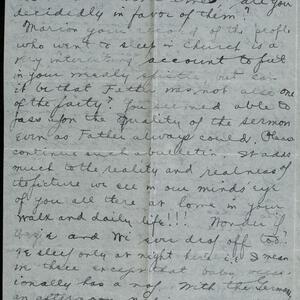 decidedly in favor of them?
"Marion your record of the people
who went to sleep in church is a
very interesting account to put
in your weekly
it be that Father was not also one
of the party? You seemed able to
pass upon the quality of the sermon
even as Father always could. Please
continue such a bulletin. It adds
much to the reality and realness of
the picture we see in our minds' eye
of you all there at home in your
walk and daily life!!! Wonder if
and we sure drop off too?
We sleep only at night here!!! I mean
in these except that baby occas-
ionally has a nap. With the sermon
an afternoon